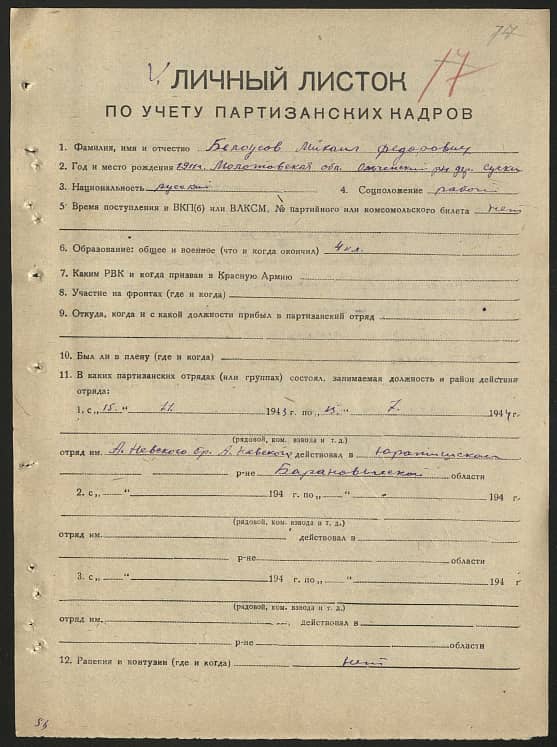 77
17
ЛИЧНЫЙ ЛИСТОК
ПО УЧЕТУ ПАРТИЗАНСКИХ КАДРОВ
1. Фамилия, имя и отчество Белоусов Михаил Федорович
2. Год и место рождения 1911 г. Молотовская обл. р-н дер.
3. Национальность русский 4. Соцположение рабоч
5 Время поступления и ВКП(б) или ВЛКСМ, № партийного или комсомольского билета нет
6. Образование: общее и военное (что и когда окончил) 4 кл.
7. Каким РВК и когда призван в Красную Армию
8. Участие на фронтах (где и когда)
9. Откуда, когда и с какой должности прибыл в партизанский отряд
10. Был ли в плену (где и когда)
11. В каких партизанских отрядах (или группах) состоял, занимаемая должность и район действия
отряда:
1. с „15. “ 11 1943 г. по „ “ 7. 1944 г.
(рядовой, ком. взвода и т. д.)
отряд им. А. Невского бр. А. Невского действовал в Юратишском
р-не Барановической области
2. с „ “ 194 г. по „ “ 194 г.
(рядовой, ком. взвода и т. д.)
отряд им. действовал в
р-не области
3. с „ “ 194 г. по „ “ 194 г
(рядовой, ком. взвода и т. д.)
отряд им. , действовал в
р-не области
12. Ранения и контузии (где и когда) нет